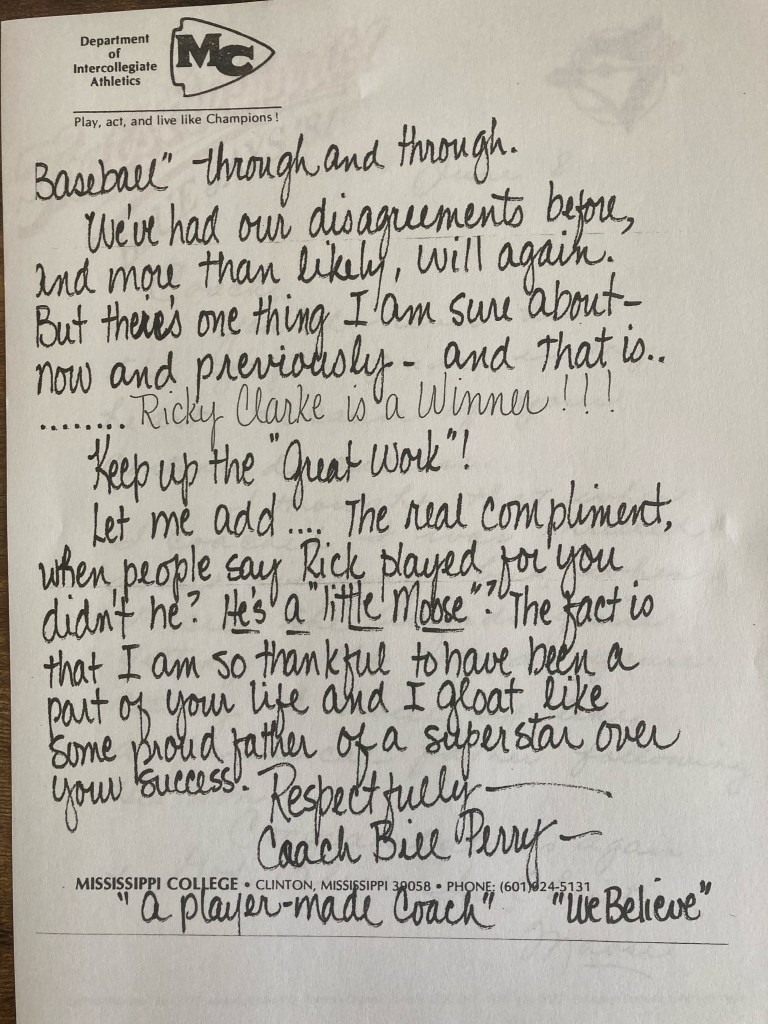 Department
of
Intercollegiate
Athletics
MC
Play, act, and live like Champions!
Baseball" through and through.
We've had our disagreements before,
and more than likely, will again.
But there's one thing I am sure about-
now and previously - and that is..
........ Ricky Clarke is a Winner!!!
Keep up the "Great Work"!
Let me add .... The real compliment,
when people say Rick played for you
didn't he? He's a "little Moose"? The fact is
that I am so thankful to have been a
part of your life and I gloat like
some proud father of a superstar over
your success. Respectfully—
Coach Bill Perry—
MISSISSIPPI COLLEGE • CLINTON, MISSISSIPPI 39058 • PHONE: (601)924-5131
"A player-made Coach" "We Believe"